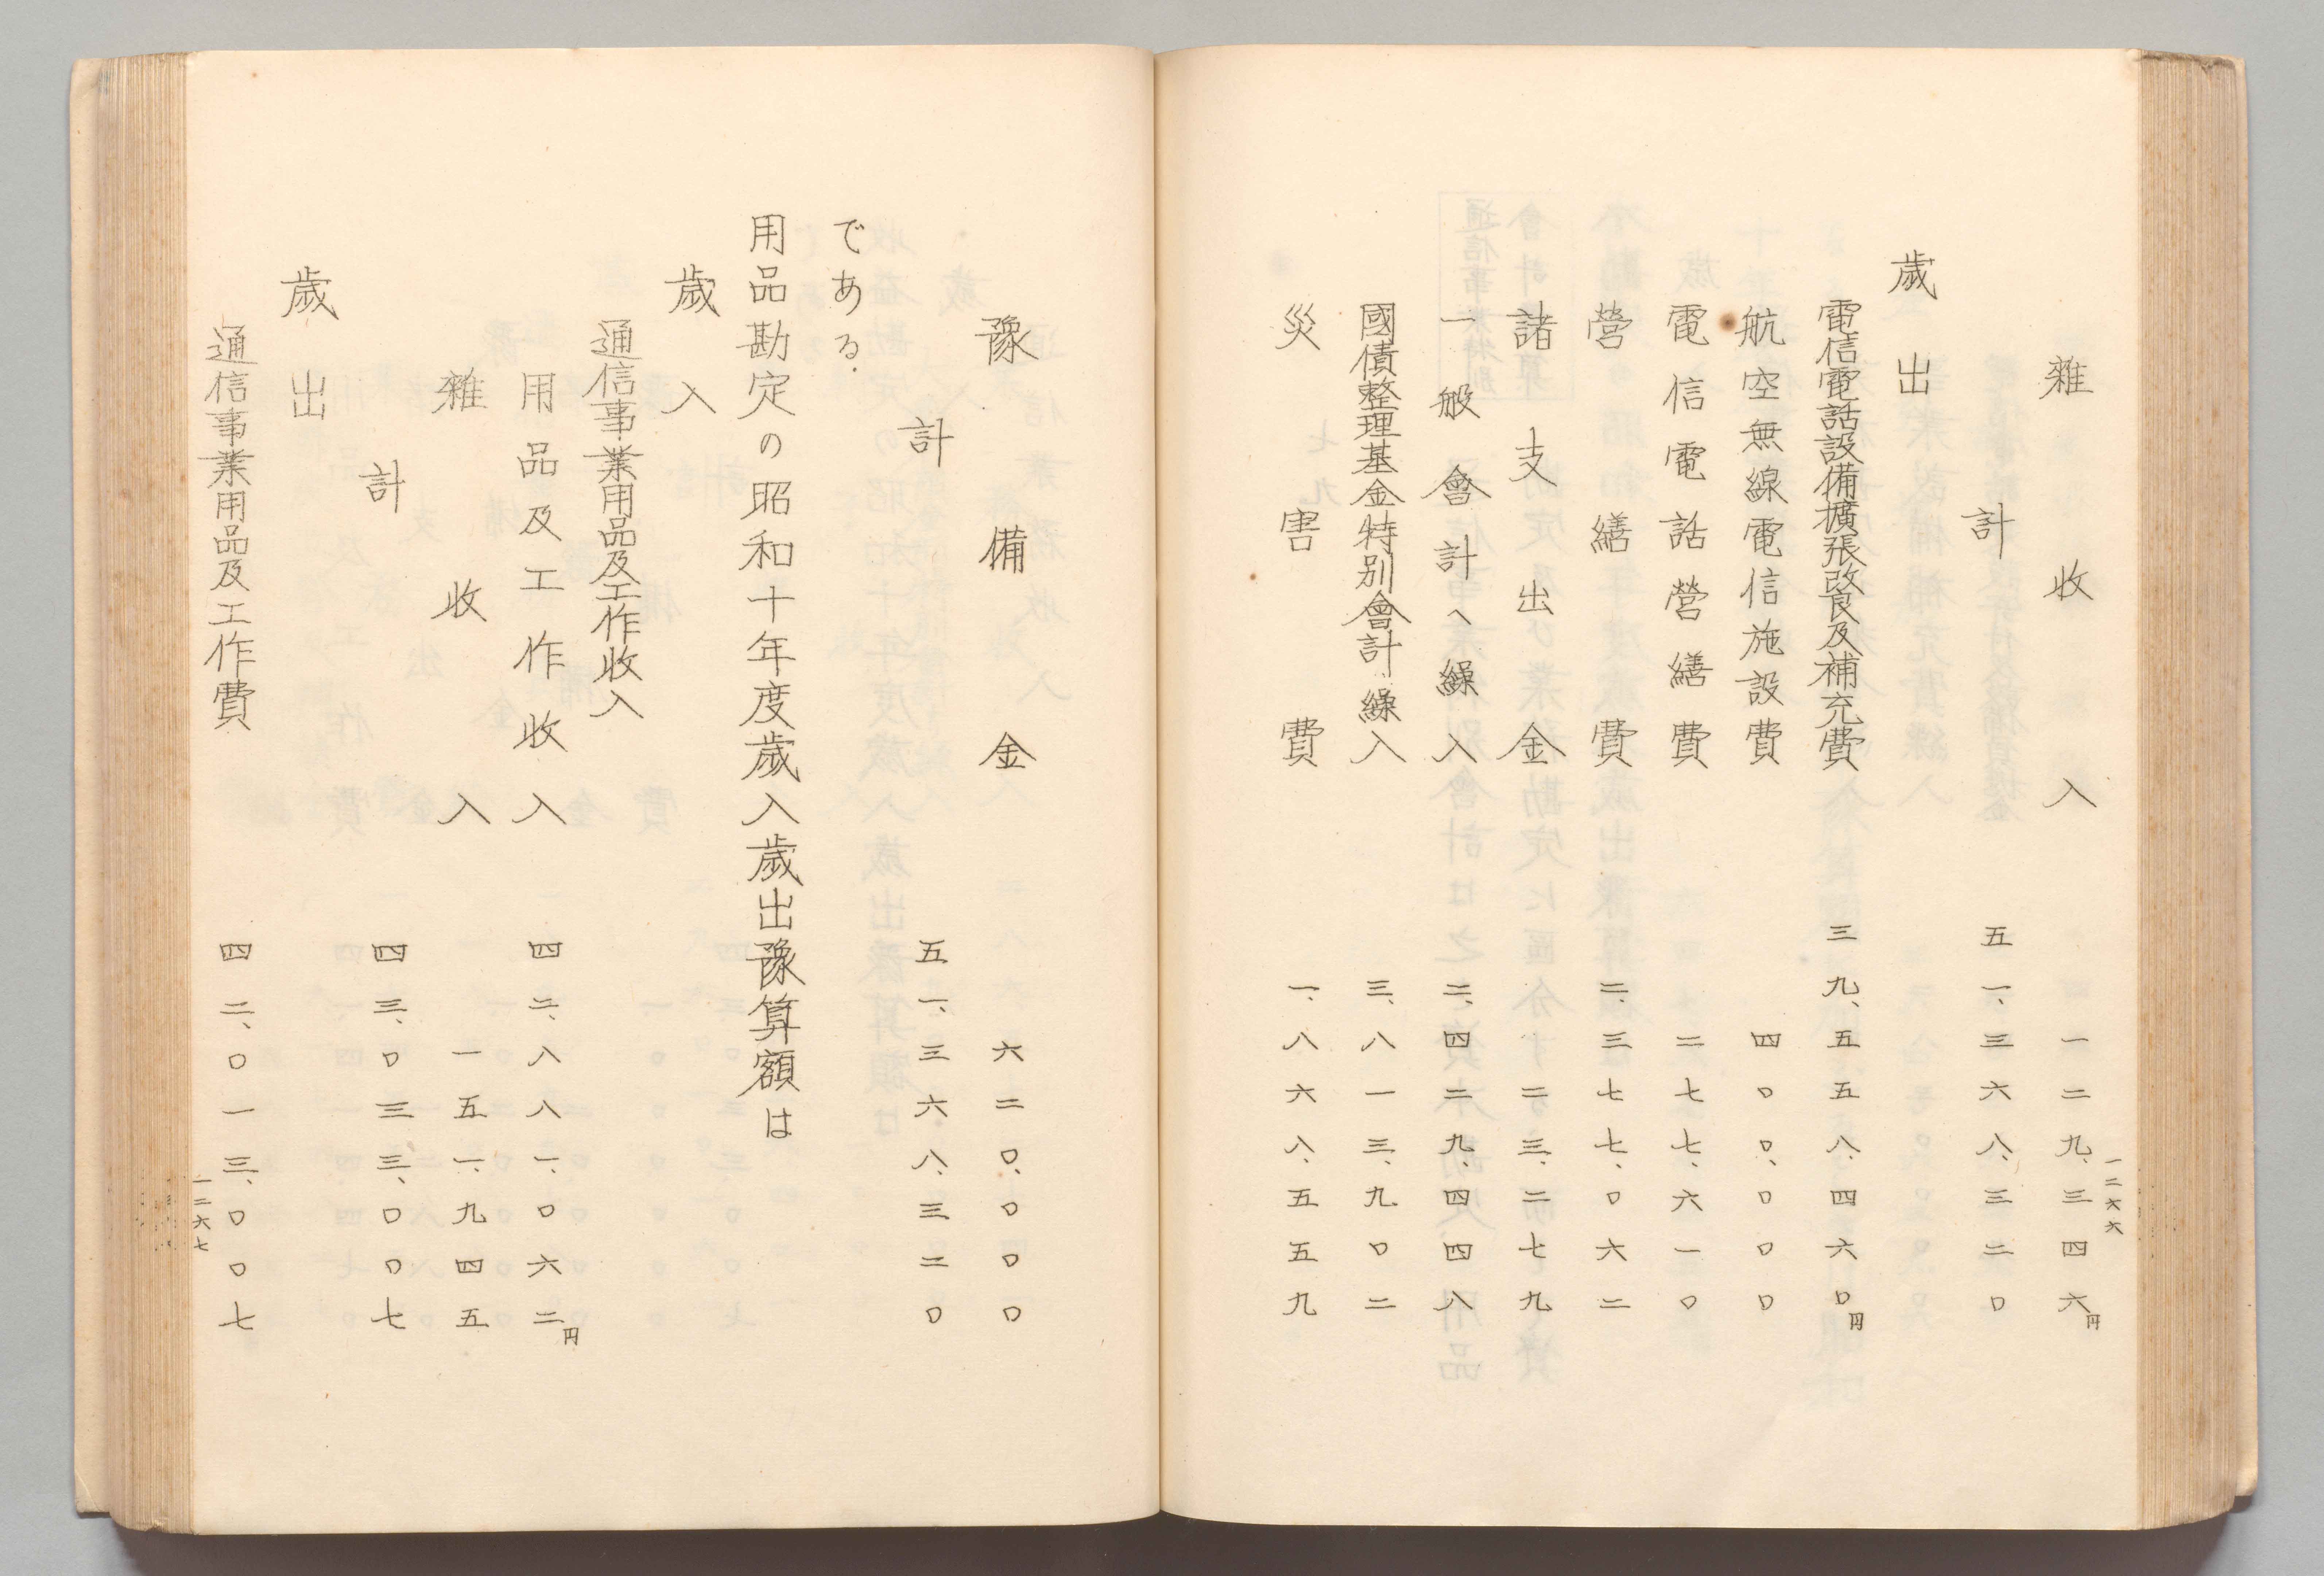 一二六六
雜收入 一二九、三四六円
計 五一、三六八、三二〇
歲出
電信電話設備擴張改良及補充費 三九、五五八、四六〇円
航空無線電信施設費 四〇〇、〇〇〇
電信電話營繕費 二七七、六一〇
營繕費 二、三七七、〇六二
諸支出金 二三、二七九
一般會計へ繰入 二、四二九、四四八
國債整理基金特別會計繰入 三、八一三、九〇二
災害費 一、八六八、五五九
豫備金 六二〇、〇〇〇
計 五一、三六八、三二〇
である.
用品勘定の昭和十年度歲入歲出豫算額は
歲入
通信事業用品及工作收入
用品及工作收入 四二、八八一、〇六二円
雜收入 一五一、九四五
計 四三、〇三三、〇〇七
歲出
通信事業用品及工作費 四二、〇一三、〇〇七
一二六七